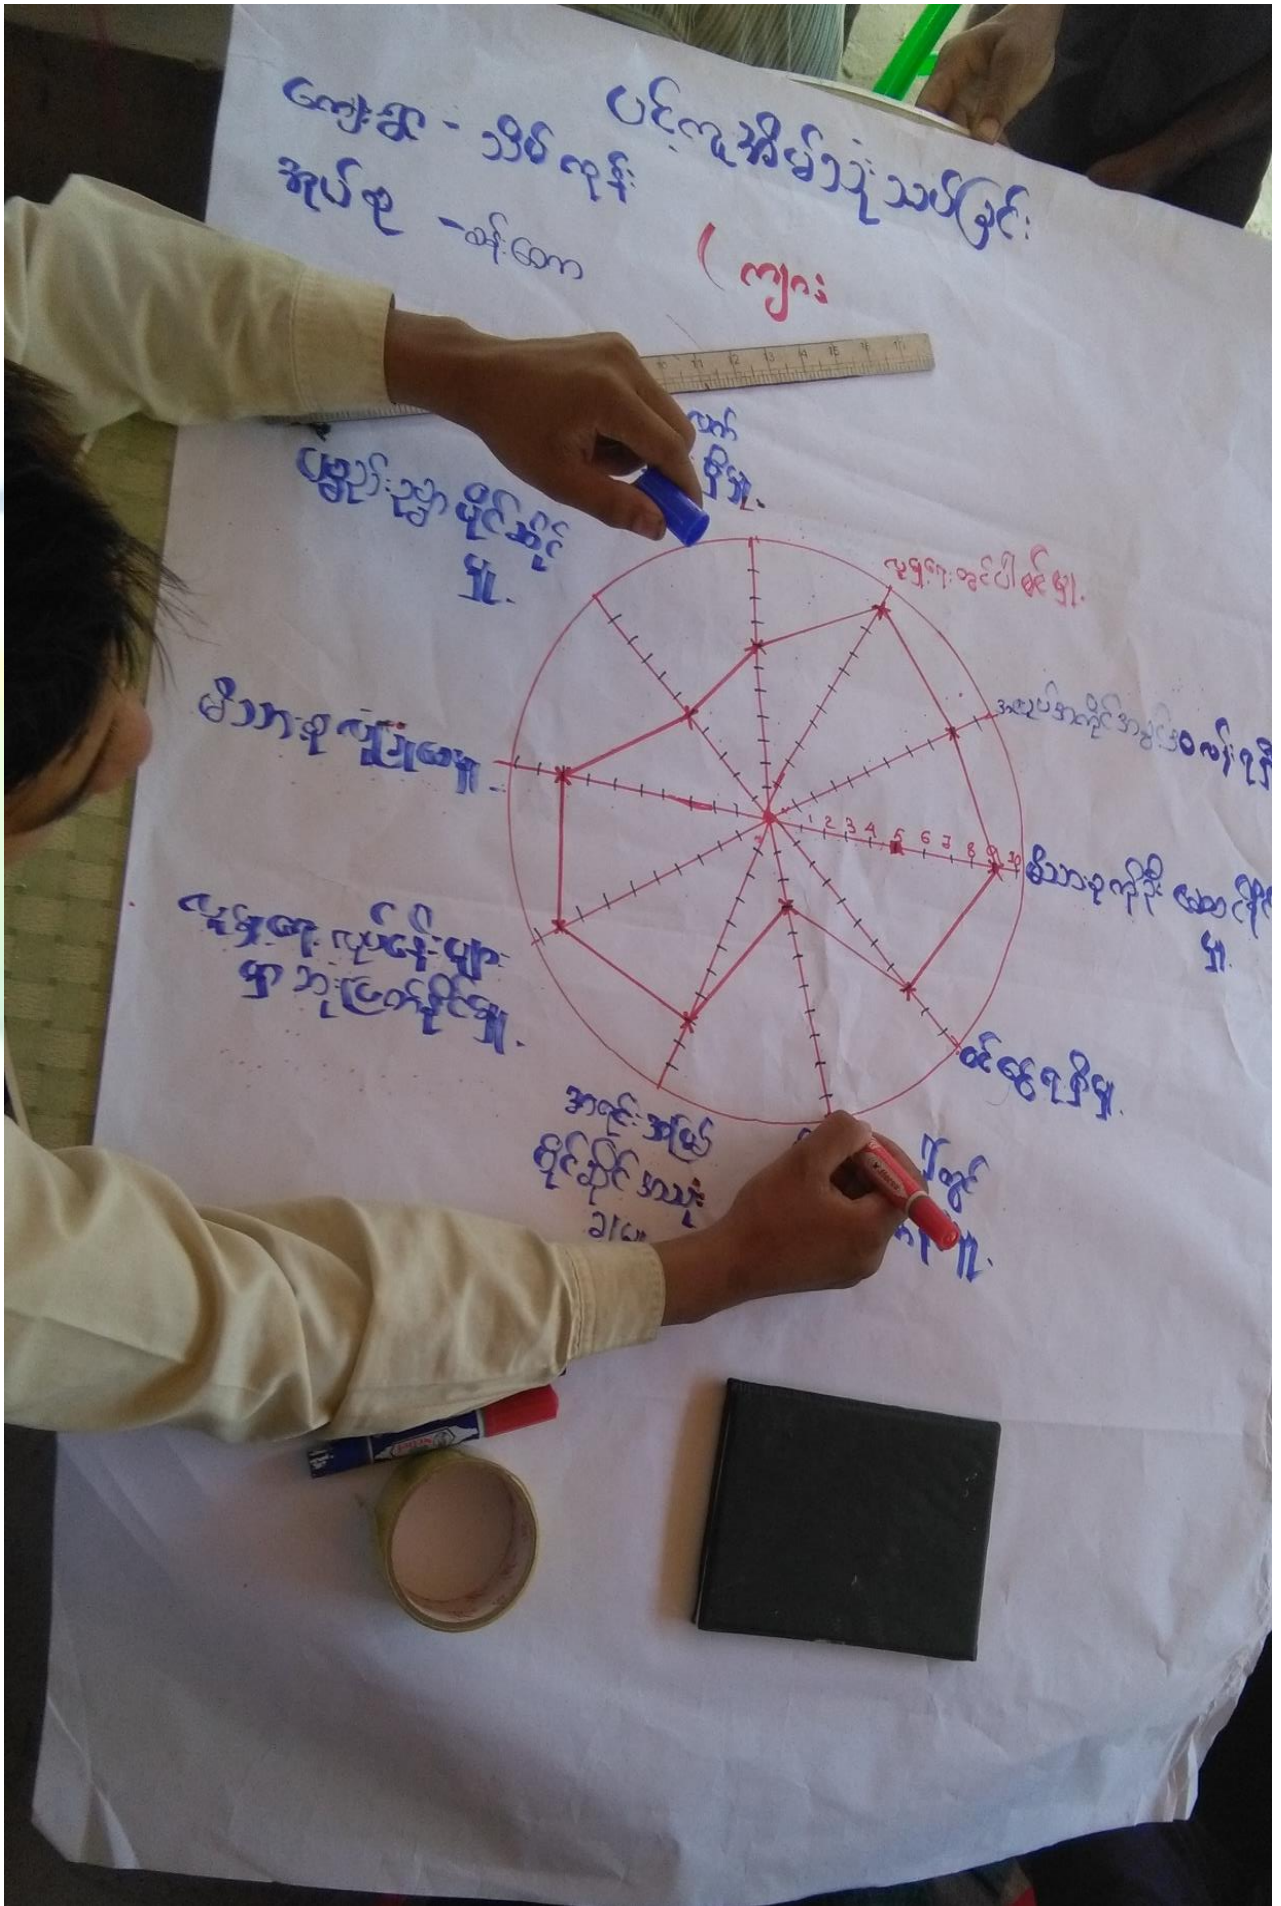 ပင့်ကူအိမ်သုံးသပ်ခြင်း
ကျေးရွာ - သိမ်ကုန်း
အုပ်စု - ခန်းတော
( ကျား
လက်
ရှိမှု.
ပစ္စည်းဥစ္စာ ပိုင်ဆိုင်
မှု.
လူမှုရေးတွင်ပါဝင်မှု.
အလုပ်အကိုင်အခွင့်အလမ်းရရှိ
မိသားစု
1 2 3 4 5 6 7 8 9 10
မိသားစုကိုဦးဆောင်နိုင်
မှု.
လူမှုရေး လုပ်ငန်းများ
မှာ ဆုံးဖြတ်နိုင်မှု.
ဝင်ငွေရရှိမှု.
အရင်းအမြစ်
ပိုင်ဆိုင်အသုံး
တွင်
မှု.